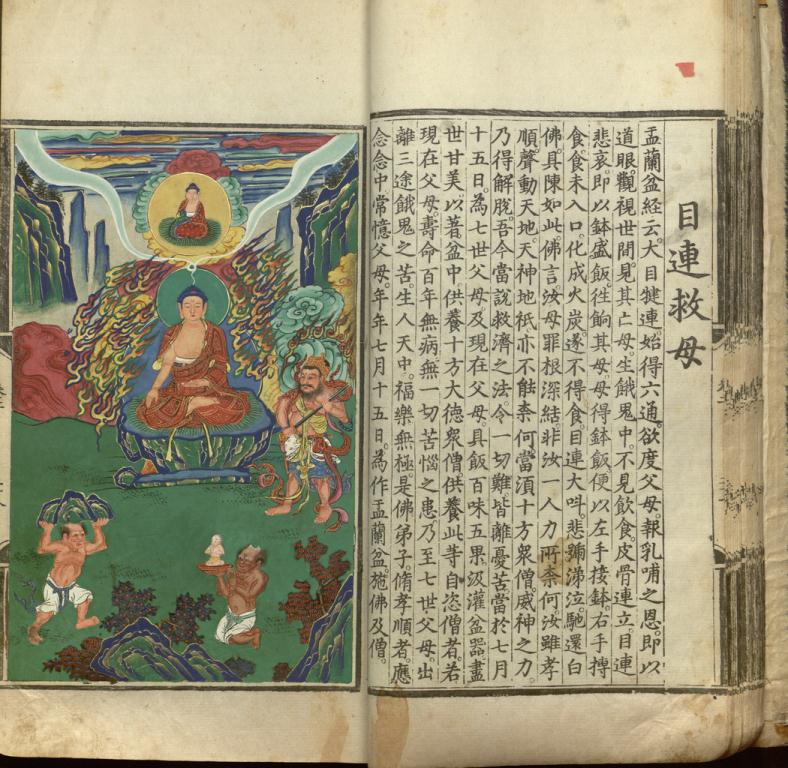 目連救母
盂蘭盆經云。大目犍連。始得六通。欲度父母。報乳哺之恩。即以
道眼。觀視世間。見其亡母。生餓鬼中。不見飲食。皮骨連立。目連
悲哀。即以鉢盛飯。往餉其母。母得鉢飯。便以左手接鉢。右手摶
食。食未入口。化成火炭。遂不得食。目連大呌。悲號涕泣。馳還白
佛。具陳如此。佛言。汝母罪根深結。非汝一人力所奈何。汝雖孝
順。聲動天地。天神地祇。亦不能柰何。當須十方眾僧。威神之力。
乃得解脫。吾今當說救濟之法。令一切難。皆離憂苦。當於七月
十五日。為七世父母。及現在父母。具飯百味五果。汲灌盆器。盡
世甘美。以著盆中。供養十方大德眾僧。供養此等自恣僧者。若
現在父母。壽命百年無病。無一切苦惱之患。乃至七世父母。出
離三途餓鬼之苦。生人天中。福樂無極。是佛弟子。脩孝順者。應
念念中。常憶父母。年年七月十五日。為作盂蘭盆。施佛及僧。